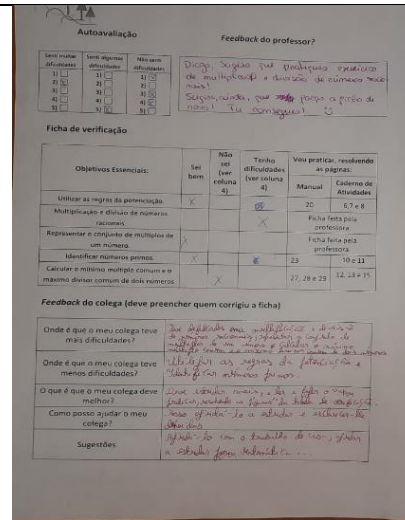 Autoavaliação
Senti muitas dificuldades
Senti algumas dificuldades
Não senti dificuldades
1)
1)
1)
2)
2)
2)
3)
3)
3)
4)
4)
4)
5)
5)
5)
Feedback do professor?
Diogo, sugiro que pratiques exercícios
de multiplicação e divisão de números racio-
nais!
Sugiro, ainda, que faças a ficha de
novo! Tu consegues!
Ficha de verificação
Objetivos Essenciais:
Sei bem
Não sei (ver coluna 4)
Tenho dificuldades (ver coluna 4)
Vou praticar, resolvendo as páginas:
Manual
Caderno de Atividades
Utilizar as regras da potenciação.
X
20
6,7 e 8
Multiplicação e divisão de números racionais.
X
Ficha feita pela professora
Representar o conjunto de múltiplos de um número.
X
Ficha feita pela professora
Identificar números primos.
X
23
10 e 11
Calcular o mínimo múltiplo comum e o máximo divisor comum de dois números
X
27, 28 e 29
12, 13 e 15
Feedback do colega (deve preencher quem corrigiu a ficha)
Onde é que o meu colega teve mais dificuldades?
Onde é que o meu colega teve menos dificuldades?
Utilizar as regras da potenciação e
identificar números primos
O que é que o meu colega deve melhor?
Deve estudar mais,
Como posso ajudar o meu colega?
Posso ajudá-lo a estudar e esclarecer-lhe
dúvidas
Sugestões
Ajudá-lo com o trabalho de casa, ajudar
a estudar